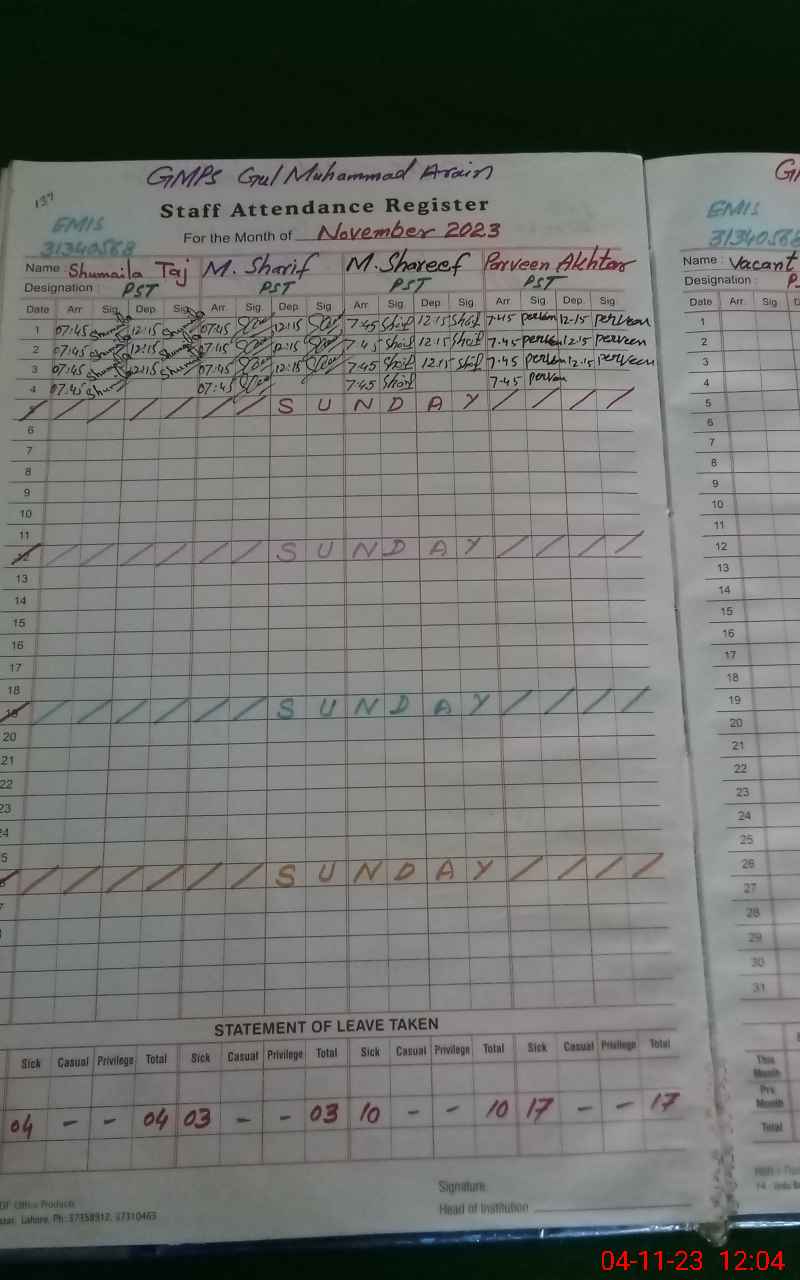 137
GMPS Gul Muhammad Arain
Staff Attendance Register
EMIS
31340568
For the Month of November 2023
Name : Shumaila Taj M. Sharif M. Shareef Parveen Akhtar
Designation : PST PST PST PST
Date Arr. Sig. Dep. Sig. Arr. Sig. Dep. Sig. Arr. Sig. Dep. Sig. Arr. Sig. Dep. Sig.
1 07:45 12:15 07:45 12:15 7.45 12:15 7.45 12.15 perveen
2 07:45 12:15 07:45 12:15 7.45 12:15 7.45 12.15 perveen
3 07:45 12:15 07:45 12:15 7.45 12.15 7.45 12.15 perveen
4 07:45 07:45 7.45 7.45
5 SUNDAY
6
7
8
9
10
11
12 SUNDAY
13
14
15
16
17
18
19 SUNDAY
20
21
22
23
24
SUNDAY
STATEMENT OF LEAVE TAKEN
Sick Casual Privilege Total Sick Casual Privilege Total Sick Casual Privilege Total Sick Casual Privilege Total
04 - - 04 03 - - 03 10 - - 10 17 - - 17
Office Products
Lahore, Ph: 37358912, 37310463
Signature
Head of Institution
EMIS
Name : Vacant
Designation :
Date Arr. Sig.
1
2
3
4
5
6
7
8
9
10
11
12
13
14
15
16
17
18
19
20
21
22
23
24
25
26
27
28
29
30
31
This Month
Prv. Month
Total
04-11-23 12:04